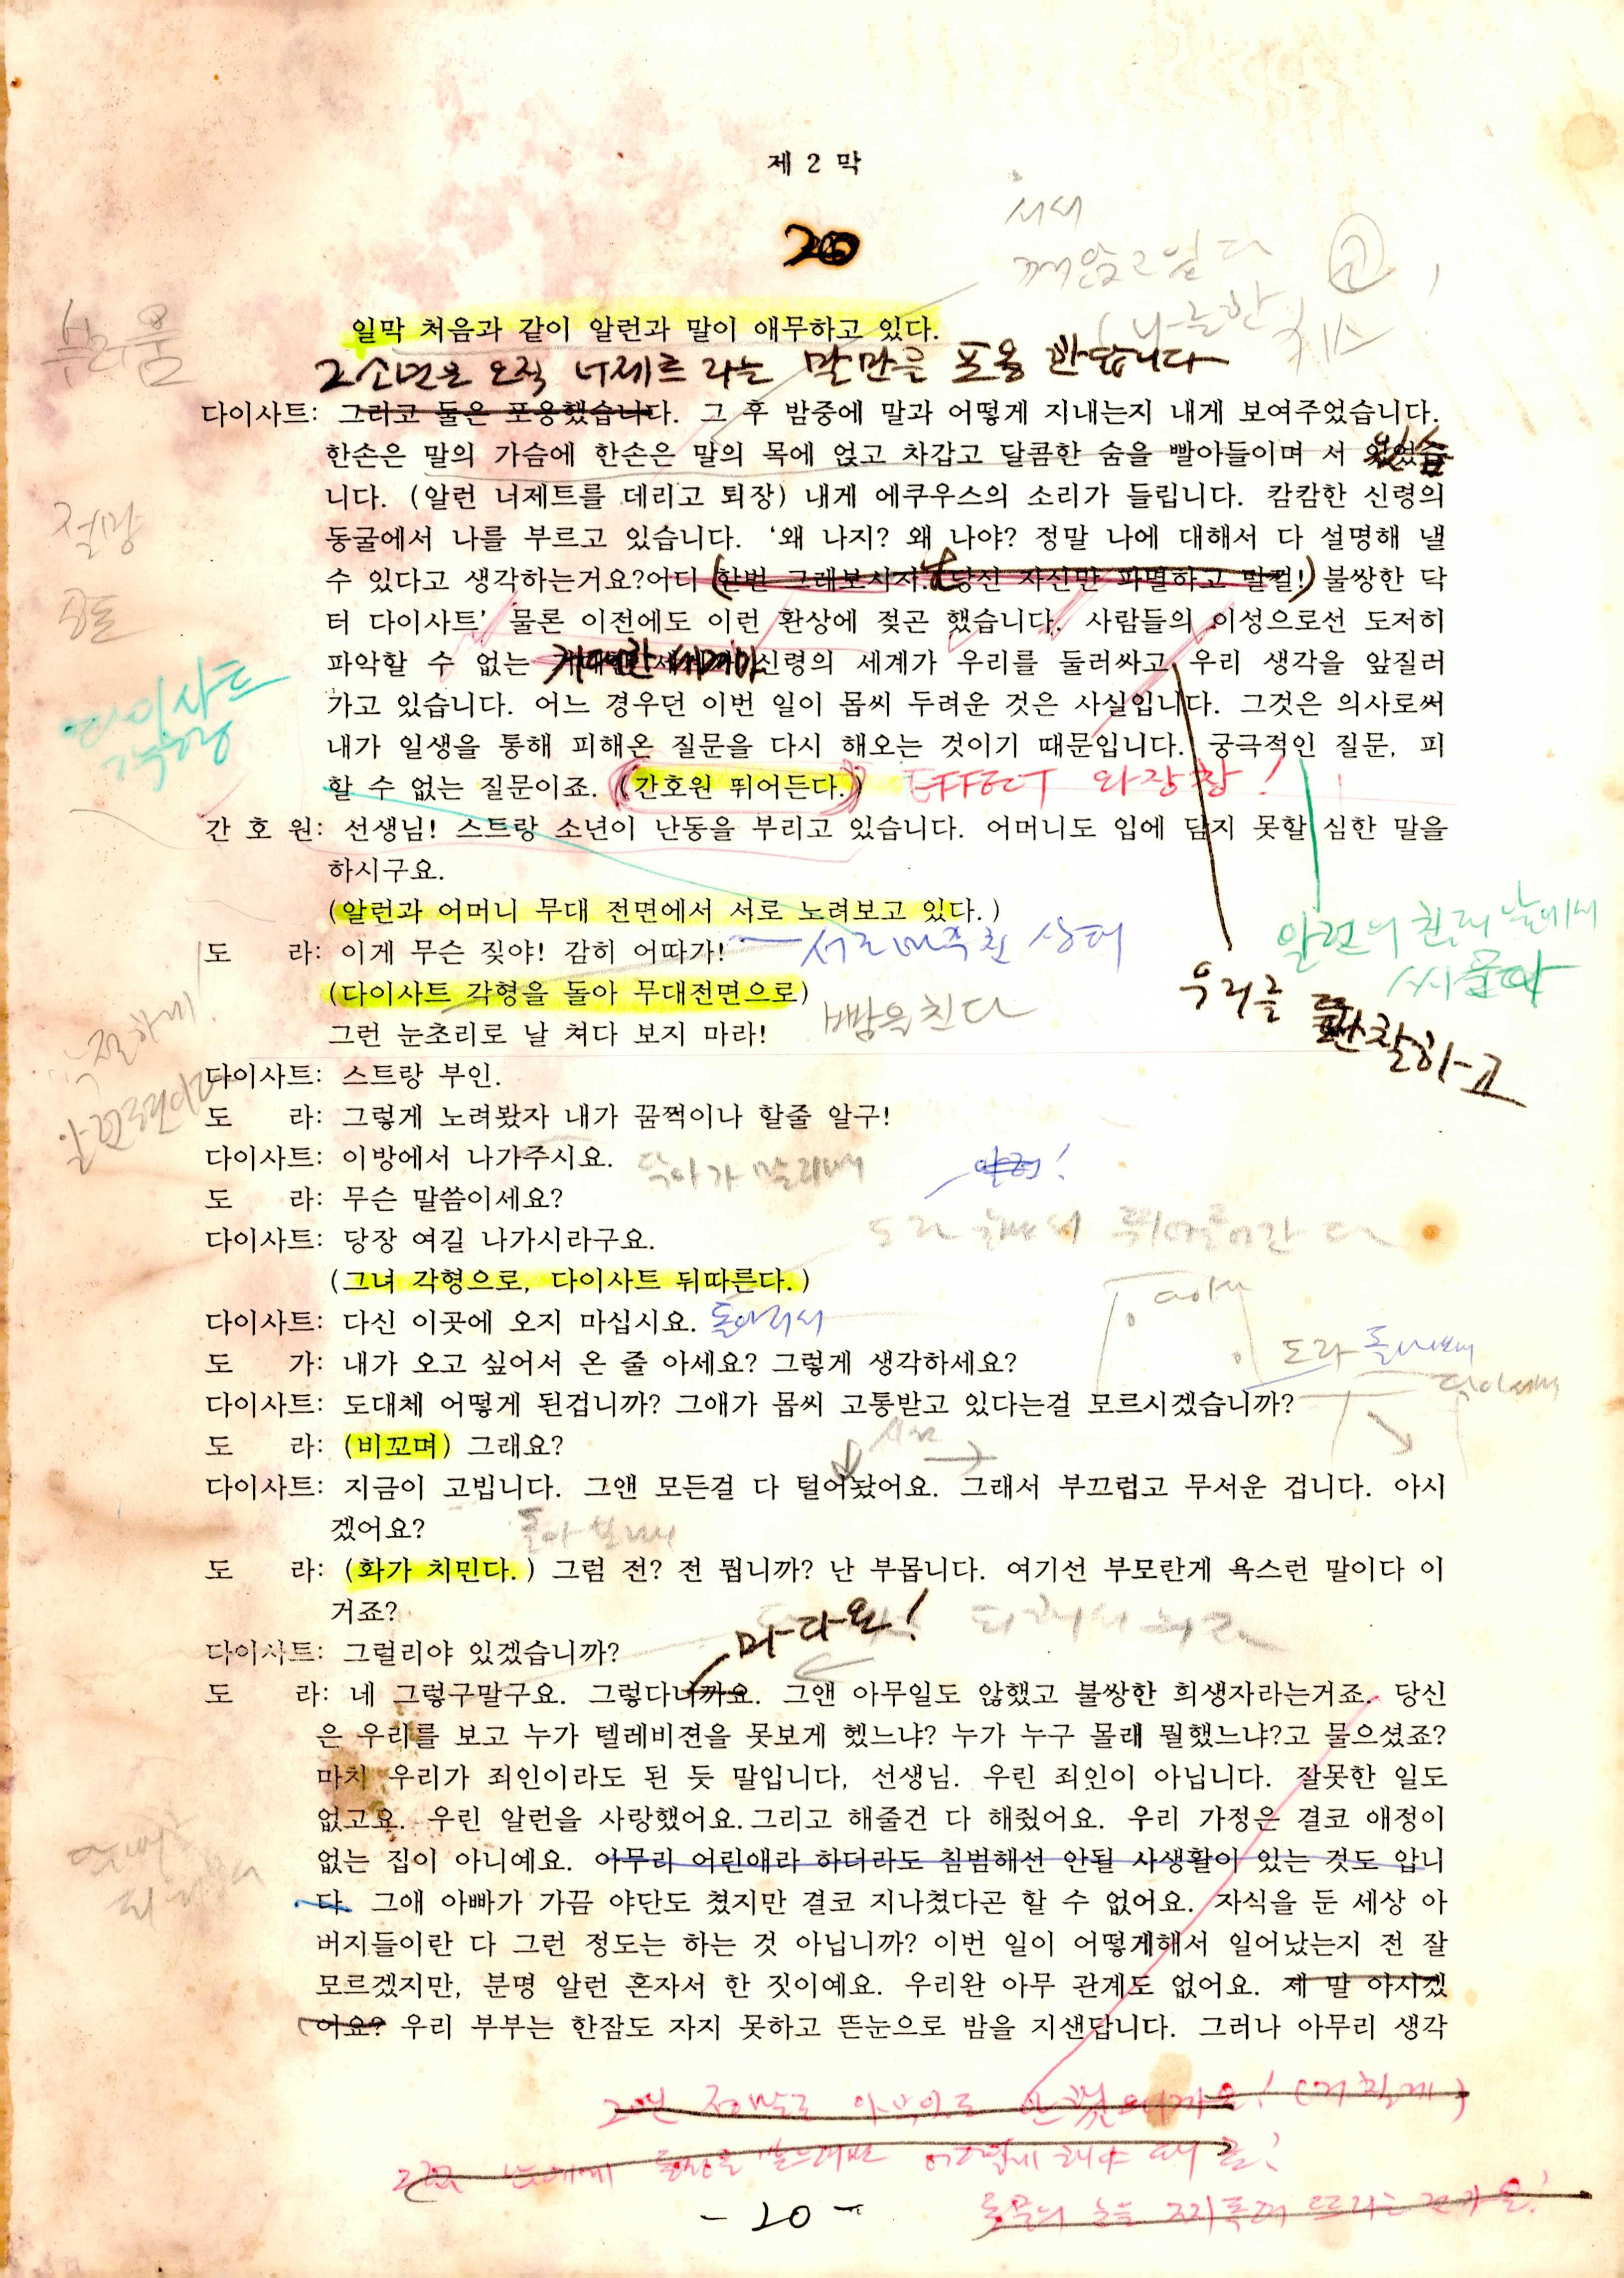 제 2 막
20
서서
껴안고 있다
부러움
일막 처음과 같이 알런과 말이 애무하고 있다.
그 소년은 오직 너제트 라는 말만을 포옹 한답니다
다이사트: 그러고 둘은 포옹했습니다. 그 후 밤중에 말과 어떻게 지내는지 내게 보여주었습니다.
한손은 말의 가슴에 한손은 말의 목에 얹고 차갑고 달콤한 숨을 빨아들이며 서 있었습
니다. (알런 너제트를 데리고 퇴장) 내게 에쿠우스의 소리가 들립니다. 캄캄한 신령의
절망
동굴에서 나를 부르고 있습니다. ‘왜 나지? 왜 나야? 정말 나에 대해서 다 설명해 낼
수 있다고 생각하는거요?어디 (한번 그래보시지. 당신 자신만 파멸하고 말걸!) 불쌍한 닥
공포
터 다이사트’ 물론 이전에도 이런 환상에 젖곤 했습니다. 사람들의 이성으로선 도저히
파악할 수 없는 신령의 세계가 우리를 둘러싸고, 우리 생각을 앞질러
다이사트
가고 있습니다. 어느 경우던 이번 일이 몹씨 두려운 것은 사실입니다. 그것은 의사로써
내가 일생을 통해 피해온 질문을 다시 해오는 것이기 때문입니다. 궁극적인 질문, 피
할 수 없는 질문이죠. (간호원 뛰어든다.) EFFECT 와장창!
간 호 원: 선생님! 스트랑 소년이 난동을 부리고 있습니다. 어머니도 입에 담지 못할 심한 말을
하시구요.
(알런과 어머니 무대 전면에서 서로 노려보고 있다.)
알런의 침대
도 라: 이게 무슨 짖야! 감히 어따가! 서로 마주친 상태
(다이사트 각형을 돌아 무대전면으로)
뺨을 친다
우리를 관찰하고
그런 눈초리로 날 쳐다 보지 마라!
다이사트: 스트랑 부인.
도 라: 그렇게 노려봤자 내가 꿈쩍이나 할줄 알구!
다이사트: 이방에서 나가주시요.
알런!
도 라: 무슨 말씀이세요?
다이사트: 당장 여길 나가시라구요.
(그녀 각형으로, 다이사트 뒤따른다.)
다이사트: 다신 이곳에 오지 마십시요. 돌아서서
도 가: 내가 오고 싶어서 온 줄 아세요? 그렇게 생각하세요?
도라
다이사트: 도대체 어떻게 된겁니까? 그애가 몹씨 고통받고 있다는걸 모르시겠습니까?
도 라: (비꼬며) 그래요?
다이사트: 지금이 고빕니다. 그앤 모든걸 다 털어놨어요. 그래서 부끄럽고 무서운 겁니다. 아시
겠어요?
돌아 보며
도 라: (화가 치민다.) 그럼 전? 전 뭡니까? 난 부몹니다. 여기선 부모란게 욕스런 말이다 이
거죠?
마다요!
다이사트: 그럴리야 있겠습니까?
도 라: 네 그렇구말구요. 그렇다니까요. 그앤 아무일도 않했고 불쌍한 희생자라는거죠. 당신
은 우리를 보고 누가 텔레비젼을 못보게 헸느냐? 누가 누구 몰래 뭘했느냐?고 물으셨죠?
마치 우리가 죄인이라도 된 듯 말입니다, 선생님. 우린 죄인이 아닙니다. 잘못한 일도
없고요. 우린 알런을 사랑했어요. 그리고 해줄건 다 해줬어요. 우리 가정은 결코 애정이
없는 집이 아니예요. 아무리 어린애라 하더라도 침범해선 안될 사생활이 있는 것도 압니
다. 그애 아빠가 가끔 야단도 쳤지만 결코 지나쳤다곤 할 수 없어요. 자식을 둔 세상 아
버지들이란 다 그런 정도는 하는 것 아닙니까? 이번 일이 어떻게해서 일어났는지 전 잘
모르겠지만, 분명 알런 혼자서 한 짓이예요. 우리완 아무 관계도 없어요. 제 말 아시겠
어요? 우리 부부는 한잠도 자지 못하고 뜬눈으로 밤을 지샌답니다. 그러나 아무리 생각
- 20 -